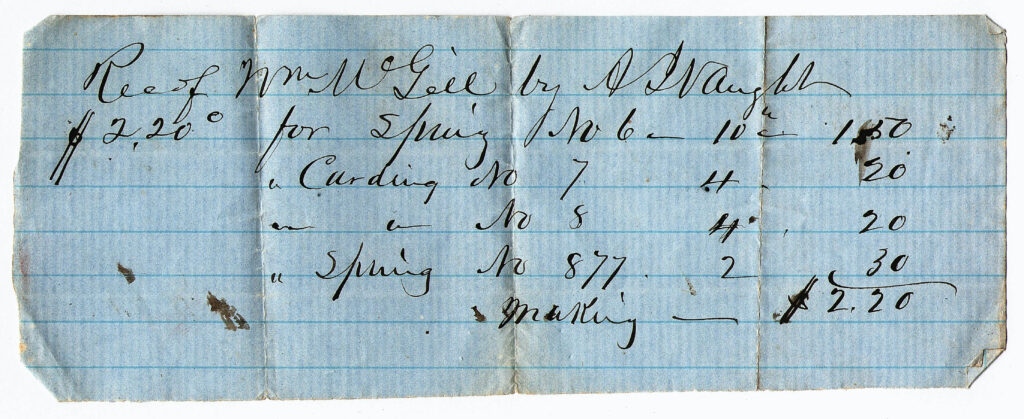 Rec of Wm McGill by A S Vaught
$2.20c for Spinig No 6 — 10 " 1.50
" Carding No 7 4 " 20
" " No 8 4 " 20
" Spinig No 877. 2 30
Making — $2.20